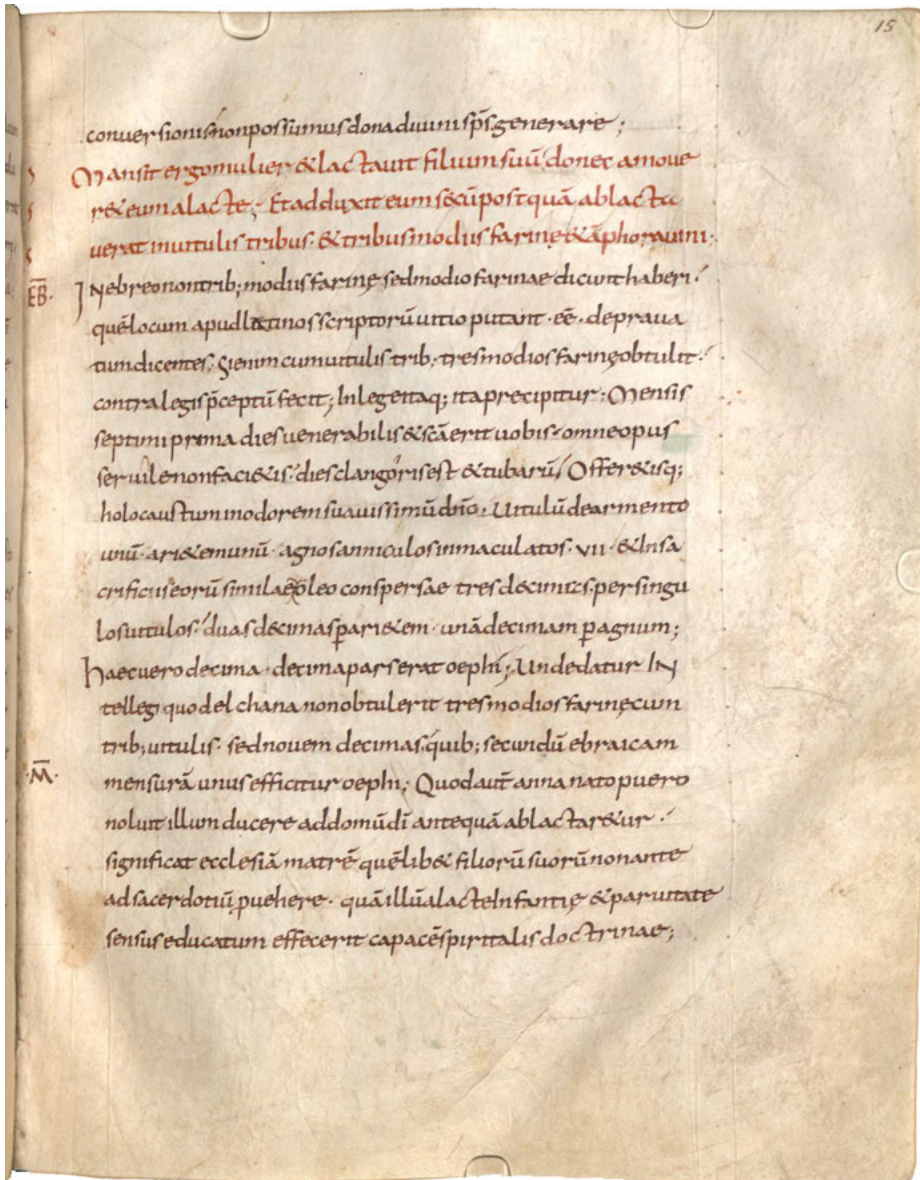 15
conversionis non possumus dona divini sp̄s generare;
Mansit ergo mulier & lactavit filium suū donec amove
r&eum a lacte; Et adduxit eum secū postquā ablacta
verat in vitulis tribus · & tribus modiis farinę & āphora vini;
EB̄· IN ebreo non trib; modiis farinę sed modio farinae dicunt haberi ·
quē locum apud latinos scriptorū vitio putant · eē · deprava
tum dicentes; Si enim cum vitulis trib; tres modios farinę obtulit ·
contra legis p̄ceptū fecit; In lege itaq; ita precipitur; Mensis
septimi prima dies venerabilis & scā erit vobis · omne opus
servile non faci&is · dies clangoris est & tubarū; Offer&isq;
holocaustum in odorem suavissimū dn̄o; Vitulū de armento
unū · ari&em unū · agnos anniculos inmaculatos · vii · & In sa
crificiis eorū similae oleo conspersae tres decimas · per singu
los vitulos · duas decimas p ari&em · unā decimam p agnum;
haec vero decima · decima pars erat oephi; Unde datur IN
tellegi quod elchana non obtulerit tres modios farinę cum
trib; vitulis · sed novem decimas · quib; secundū ebraicam
·M̄· mensurā unus efficitur oephi; Quod aut̄ anna nato puero
noluit illum ducere ad domū dī antequā ablactar&ur ·
significat ecclesiā matrē quēlib& filiorū suorū non ante
ad sacerdotiū pvehere · quā illū a lacte Infantię & parvitate
sensus educatum effecerit capacē spiritalis doctrinae;